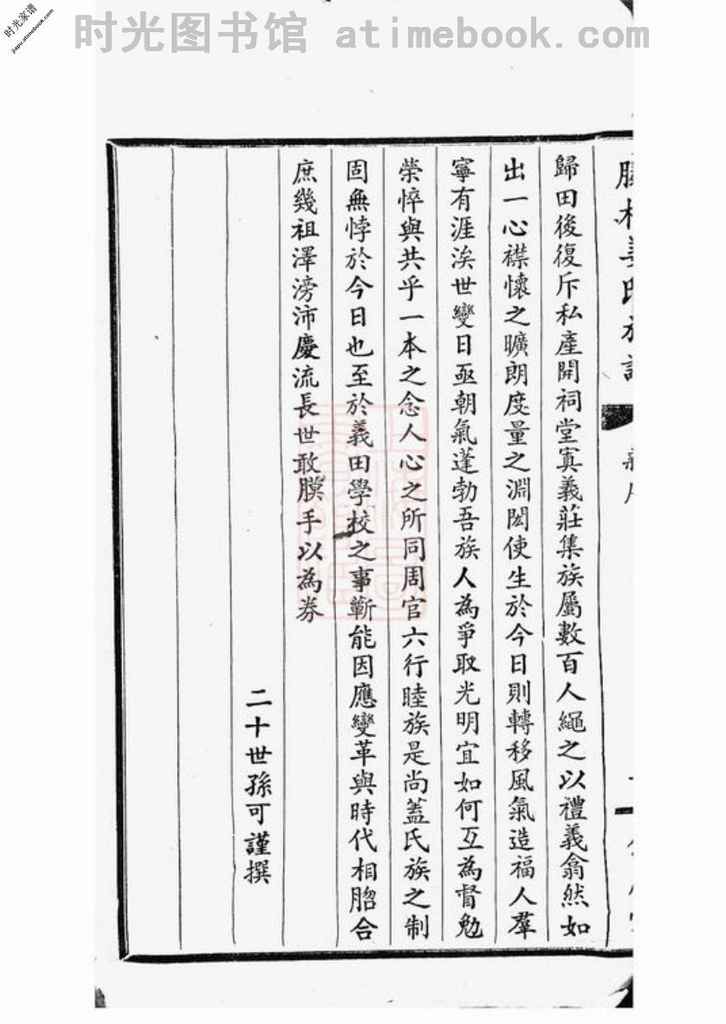 时光图书馆 atimebook.com
时光家谱
jiapu.atimebook.com
姜氏族譜
歸田後復斥私產開祠堂寘義莊集族屬數百人繩之以禮義翕然如
出一心襟懷之曠朗度量之淵閎使生於今日則轉移風氣造福人羣
寧有涯涘世變日亟朝氣蓬勃吾族人為爭取光明宜如何互為督勉
榮悴與共乎一本之念人心之所同周官六行睦族是尚蓋氏族之制
固無悖於今日也至於義田學校之事蘄能因應變革與時代相脗合
庶幾祖澤滂沛慶流長世敢膜手以為券
二十世孫可謹撰